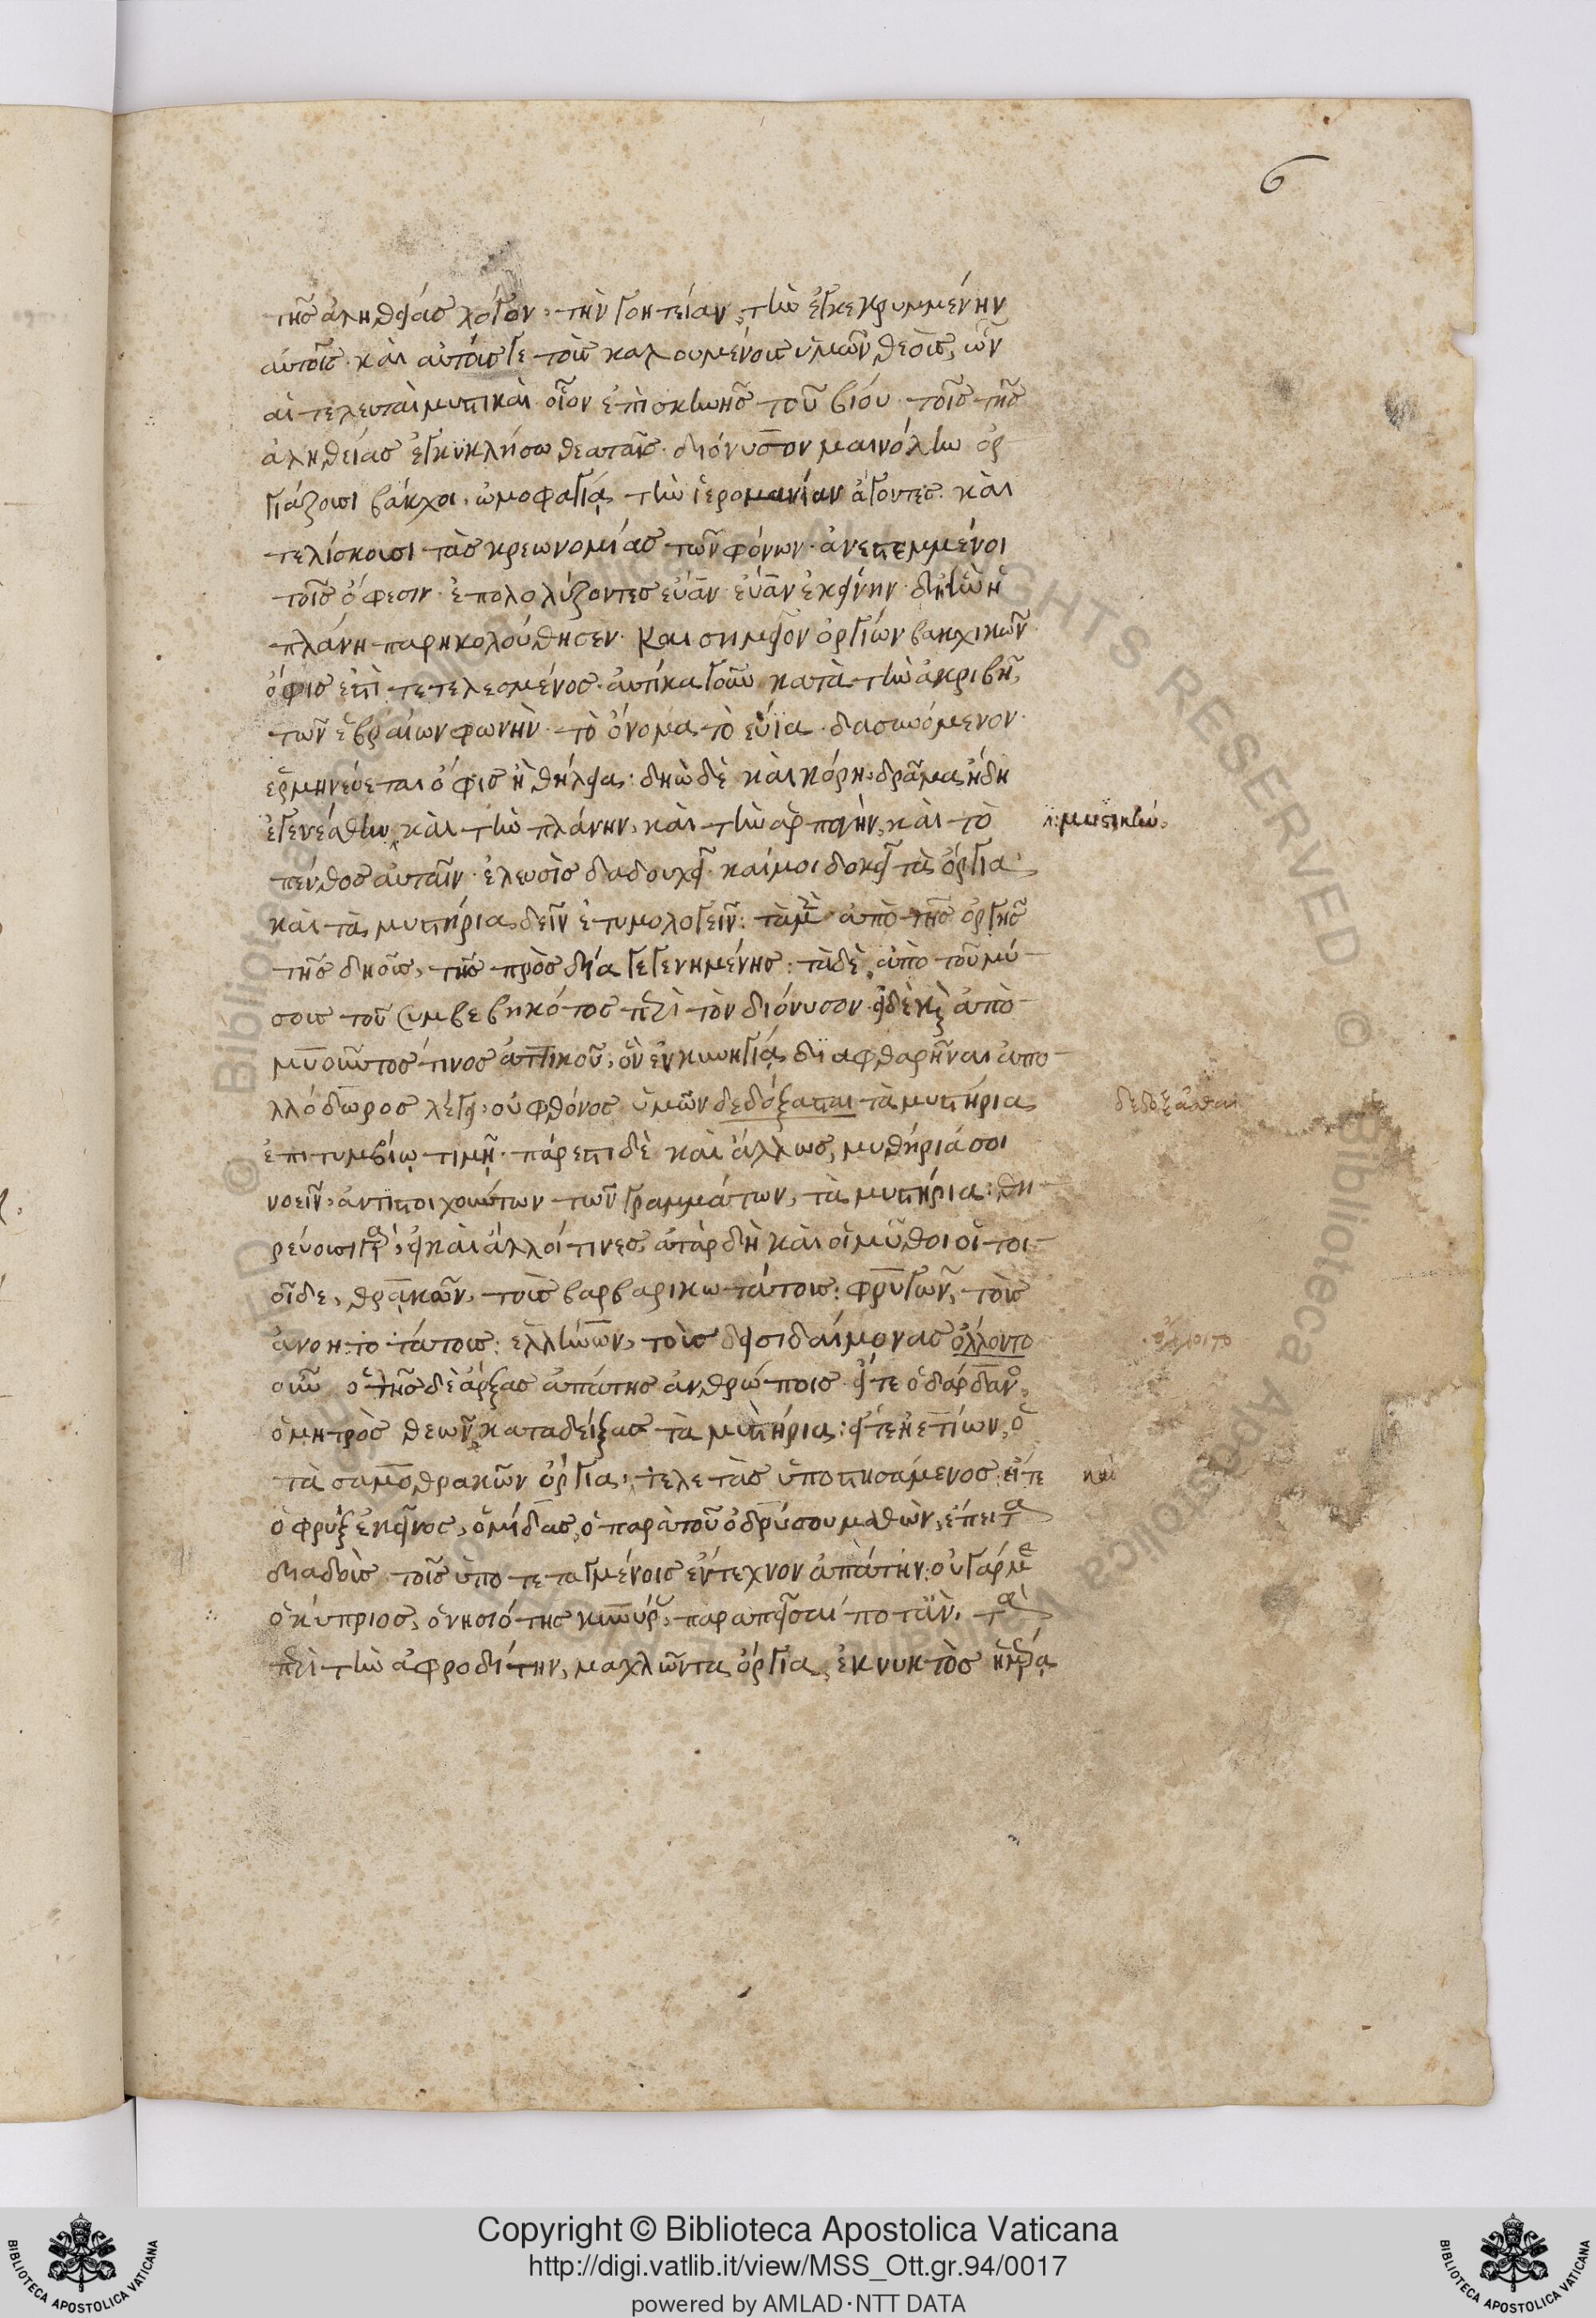 6
τῆς ἀληθείας λόγον, τὴν γοητείαν, τὴν ἐγκεκρυμμένην
αὐτοῖς· καὶ αὐτοίς γε τοῖς καλουμένοις ὑμῶν θεοῖς, ὧν
αἱ τελευταὶ μυστικαὶ· οἷον ἐπὶ σκηνῆς τοῦ βίου· τοῖς τῆς
ἀληθείας ἐγκυκλήσω θεαταῖς· διόνυσον μαινόλην ὀρ
γιάζουσι βάκχοι· ὠμοφαγίᾳ τὴν ἱερομανίαν ἄγοντες· καὶ
τελίσκουσι τὰς κρεωνομίας τῶν φόνων· ἀνεστεμμένοι
τοῖς ὄφεσιν· ἐπολολύζοντες εὐᾶν· εὐᾶν ἐκείνην· δι' ἣν ἡ
πλάνη παρηκολούθησεν· Και σημεῖον ὀργίων βακχικῶν
ὄφις ἐστὶ τετελεσμένος· αὐτίκα γοῦν κατὰ τὴν ἀκριβῆ,
τῶν ἑβραίων φωνὴν· τὸ ὄνομα τὸ εὐΐα· δασυνόμενον·
ἑρμηνεύεται ὄφις ἡ θήλεια: δηὼ δὲ καὶ κόρη, δρᾶμα ἤδη
ἐγενέσθην, καὶ τὴν πλάνην, καὶ τὴν ἁρπαγήν, καὶ τὸ
λ: μυστικὸν,
πένθος αὐταῖν· ἐλευσὶς δαδουχεῖ· καί μοι δοκεῖ τὰ ὄργια
καὶ τὰ μυστήρια δεῖν ἐτυμολογεῖν: τὰ μὲν ἀπὸ τῆς ὀργῆς
τῆς δηοῦς, τῆς πρὸς δία γεγενημένης: τὰ δὲ, ἀπὸ τοῦ μύ
σους τοῦ συμβεβηκότος περὶ τὸν διόνυσον· εἰ δὲ καὶ ἀπὸ
μυοῦντος τινος ἀττικοῦ, ὃν ἐν κυνηγίᾳ διαφθαρῆναι ἀπο
λλόδωρος λέγει, οὐ φθόνος ὑμῶν δεδόξασται τὰ μυστήρια
δεδοξάσθαι
ἐπιτυμβίῳ τιμῇ· πάρεστι δὲ καὶ ἄλλως, μυθήριά σοι
νοεῖν, ἀντιστοιχούντων τῶν γραμμάτων, τὰ μυστήρια: θη
ρεύουσι γὰρ, εἰ καὶ ἄλλοί τινες, ἀτὰρ δὴ καὶ οἱ μῦθοι οἱ τοι
οίδε, θρᾳκῶν, τοὺς βαρβαρικωτάτους: φρυγῶν, τοὺς
ἀνοητοτάτους: ἑλλήνων, τοὺς δεισιδαίμονας ὄλλοντο
ὄλοιτο
οὖν ὁ τῆς δὲ ἄρξας ἀπάτης ἀνθρώποις· εἴτε ὁ δάρδανος,
ὁ μητρὸς θεῶν καταδείξας τὰ μυστήρια: εἴτε ἠετίων, ὁ
τὰ σαμοθρακῶν ὄργια, τελετὰς ὑποστησάμενος· εἴτε
καὶ
ὁ φρὺξ ἐκεῖνος, ὁ μίδας, ὁ παρὰ τοῦ ὀδρύσου μαθὼν, ἔπειτα
διαδοὺς τοῖς ὑποτεταγμένοις ἔντεχνον ἀπάτην: οὐ γάρ με
ὁ κύπριος, ὁ νησιότης κινύρας, παραπεῖσαί ποτ' ἂν, τὰ
περὶ τὴν ἀφροδίτην, μαχλῶντα ὄργια, ἐκ νυκτὸς ἡμέρᾳ
Copyright © Biblioteca Apostolica Vaticana
http://digi.vatlib.it/view/MSS_Ott.gr.94/0017
powered by AMLAD·NTT DATA